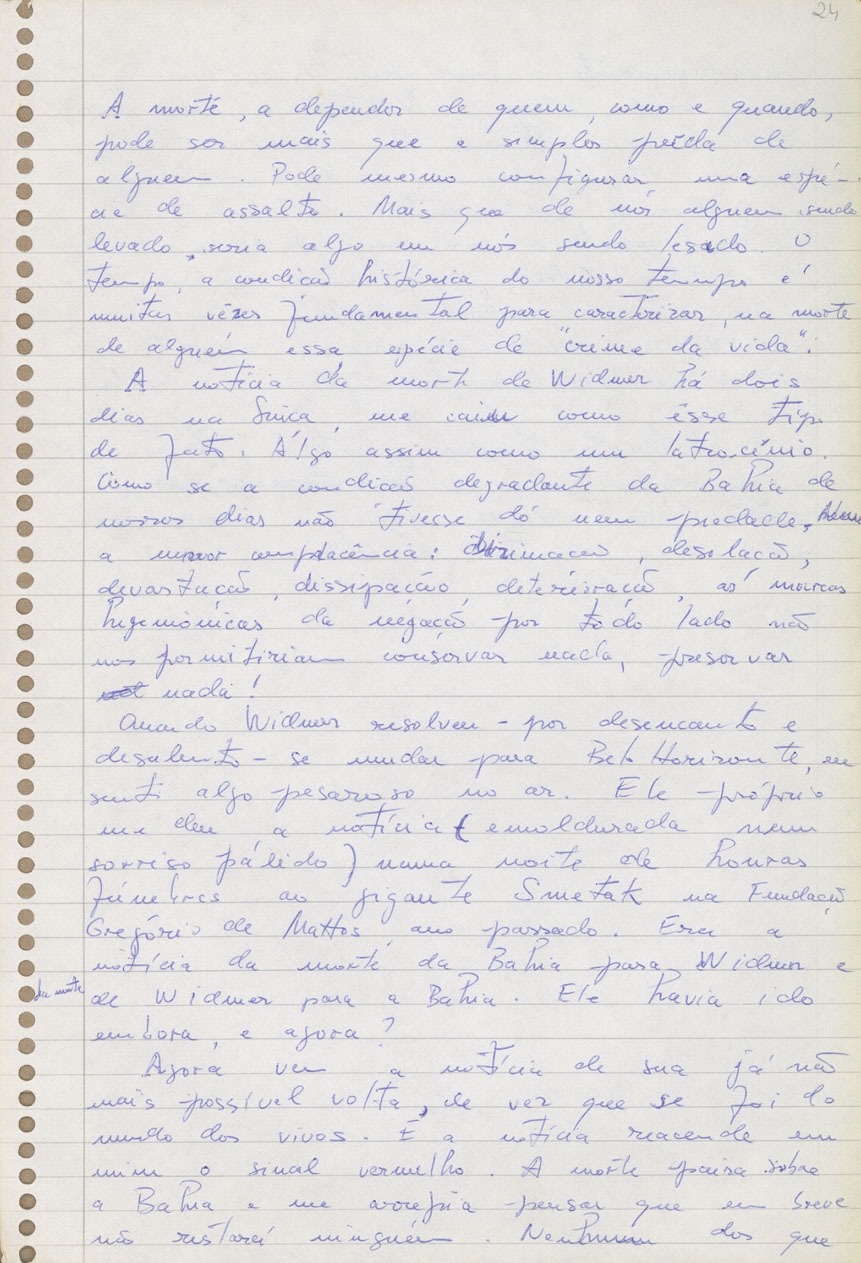 24
A morte, a depender de quem, como e quando,
pode ser mais que a simples perda de
alguem. Pode mesmo configurar uma espé-
cie de assalto. Mais que de nós alguem sendo
levado, seria algo em nós sendo lesado. O
tempo, a condição histórica do nosso tempo é
muitas vêzes fundamental para caracterizar, na morte
de alguém essa espécie de "crime da vida".
A notícia da morte de Widmer há dois
dias na Suiça, me caiu como êsse tipo
de fato. Algo assim como um latrocínio.
Como se a condicão degradante da Bahia de
nossos dias não tivesse dó nem piedade,
a menor complacência: dizimação, desolação,
devastação, dissipação, deterioração, as marcas
hegemônicas da negação por todo lado não
nos permitiriam conservar nada, preservar
nada!
Quando Widmer resolveu - por desencanto e
desalento - se mudar para Belo Horizonte, eu
senti algo pesaroso no ar. Ele próprio
me deu a notícia (emoldurada num
sorriso pálido) numa noite de honras
fúnebres ao gigante Smetak na Fundação
Gregório de Mattos, ano passado. Era a
notícia da morte da Bahia para Widmer e
da morte de Widmer para a Bahia. Ele havia ido
embora, e agora?
Agora vem a notícia de sua já não
mais possível volta, de vez que se foi do
mundo dos vivos. E a notícia reacende em
mim o sinal vermelho. A morte paira sobre
a Bahia e me arrepia pensar que em breve
não restará ninguém. Nenhum dos que